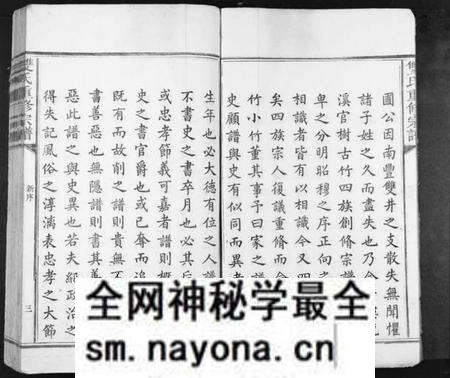 國公因南豐雙井之支散失無聞懼
諸子姓之久而盡失也乃
溪官樹古竹四族創修宗譜
卑之分明昭穆之序正向之
相識者皆有以相識今又四
矣四族宗人復議重修而
竹小竹董其事予曰家之譜
史顧譜與史有似同而異
生年也必大德有位之人譜
不書史之書卒月也必其
或忠孝節義可嘉者譜則概
史之書官爵也或已奪而追
既有而故削之譜則貴無
書善惡也無隱譜則書其善
惡此譜之與史異也若夫紀政治之
得失記風俗之淳漓表忠孝之大節
氏重修宗譜
新序
三
全网神秘学最全
sm.nayona.cn